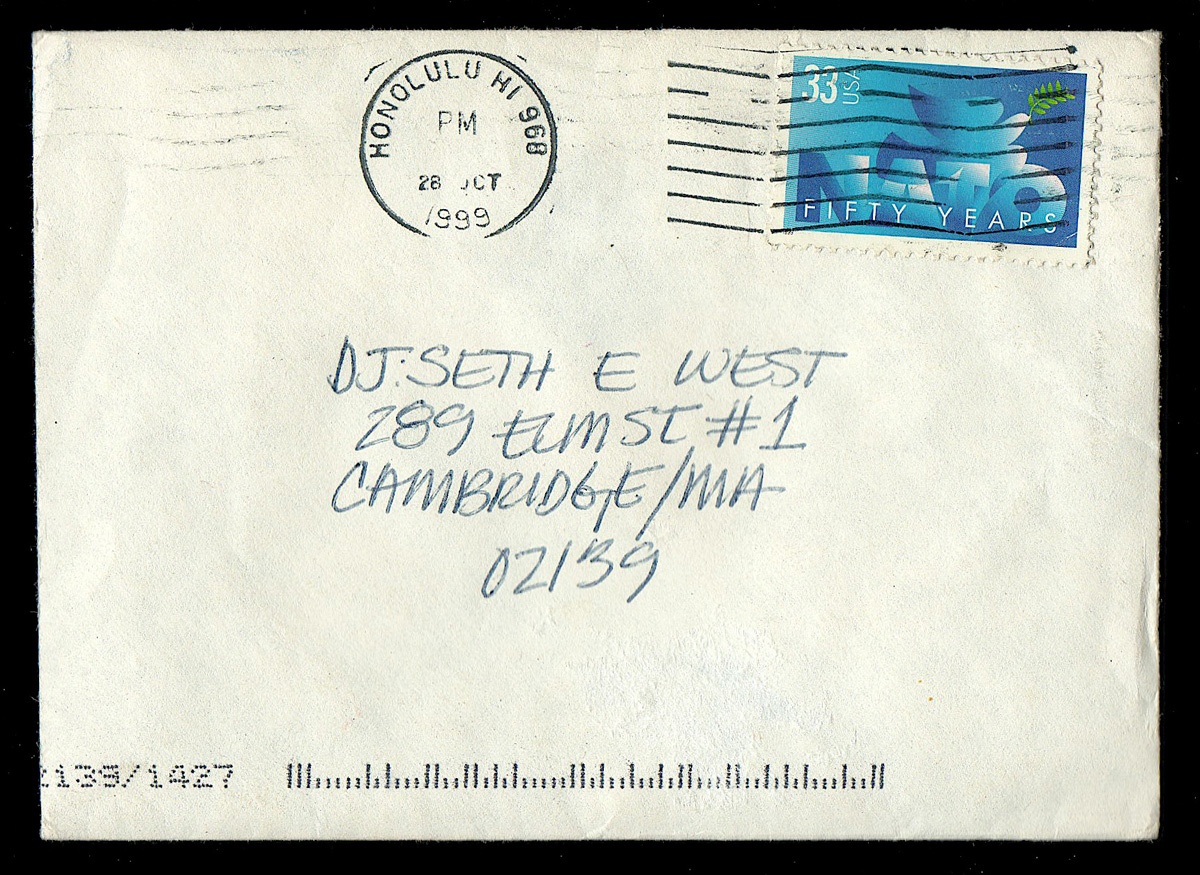 HONOLULU HI 968
PM
28 OCT
1999
33 USA
NATO
FIFTY YEARS
DJ. SETH E WEST
289 ELM ST #1
CAMBRIDGE/MA
02139
2139/1427